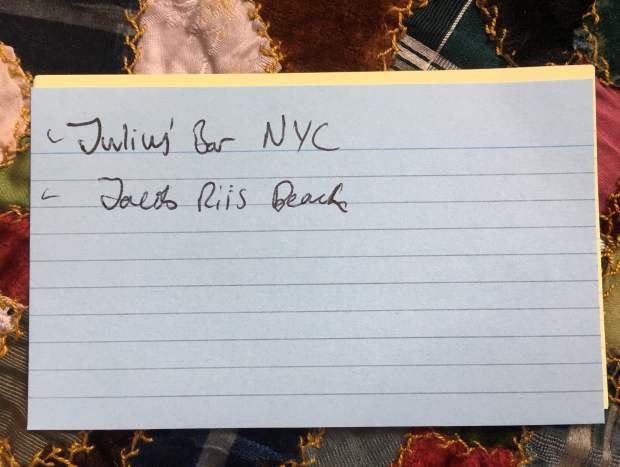 - Julius' Bar NYC
- Jacob Riis Beach